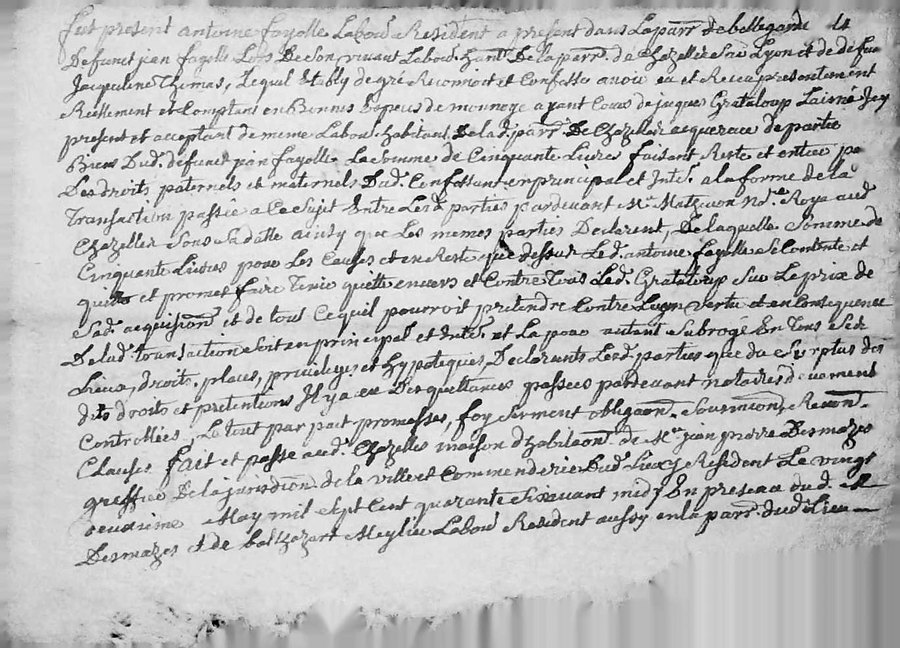 fut present antoine fayolle Labou.r Resident a present dans La parr.e de bellegarde
Defunct jean fayolle Lors De Son vivant Labou.r hant. De La parr.e de Chazelles Sur Lyon et de defun
Jacqueline Thomas, Lequel Etably de gré Reconnoit et Confesse avoir eu et Receu presentement
Reellement et Comptant en Bonnes Especes de monnoye ayant Cours de jaques Grataloup Laisné Jcy
present et acceptant de meme Labou.r habitant De lad. parr.e De Chazelles acquereur de partie
Biens Dud. defunct jean fayolle La Somme de Cinquante Livres faisant Reste et entier pa
Des droits paternels et maternels Dud. Confessant en principal et Inte.s a la forme de la
Transaction passée a Ce Sujet Entre Lesd. parties pardevant M.e No.re Royal aud.
Chazelles Sous Sa datte ainsy que Les memes parties Declarent, De laquelle Somme de
Cinquante Livres pour Les Causes et en Reste que dessus Led. antoine fayolle Se Contente et
quitte et promet faire Tenir quitte envers et Contre Tous Led. Grataloup Sur Le prix de
Sad. acquisition et de tout Ce quil pourroit pretendre Contre Luy en vertu et en Consequence
De lad. transaction Soit en principal et Inte.s et La pour autant Subrogé En Tous Ses
Lieux, droits, places, privileges et hypoteques, Declarants Lesd. parties que du Surplus des
dits droits et pretentions Il y a eu Des quittances passées pardevant notaires deuement
Controllées, Le tout par pact promesses, foy Serment obligaon. Soumission, Renon.
Clauses fait et passé aud. Chazelles maison d'habitaon. de M.e jean pierre Desmazes
greffier De la jurisdion. de la ville et Commenderie Dud. Lieu y Resident Le vingt
deuxieme May mil Sept Cent quarante Six avant midy En presence dud. M.e
Desmazes et de baltazart Meylieu Labou.r Resident aussy en la parr.e dud. Lieu